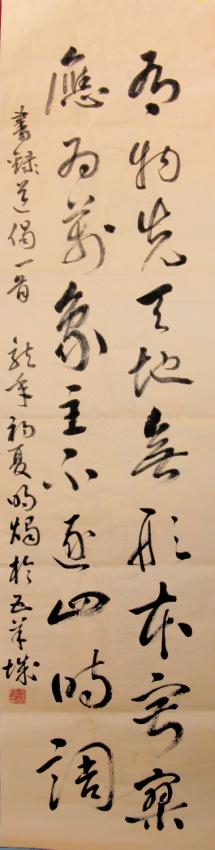 有物先天地無形本寂寥
應為萬象主不逐四時調
書錄道偈一首 龍年初夏明燭於五羊城